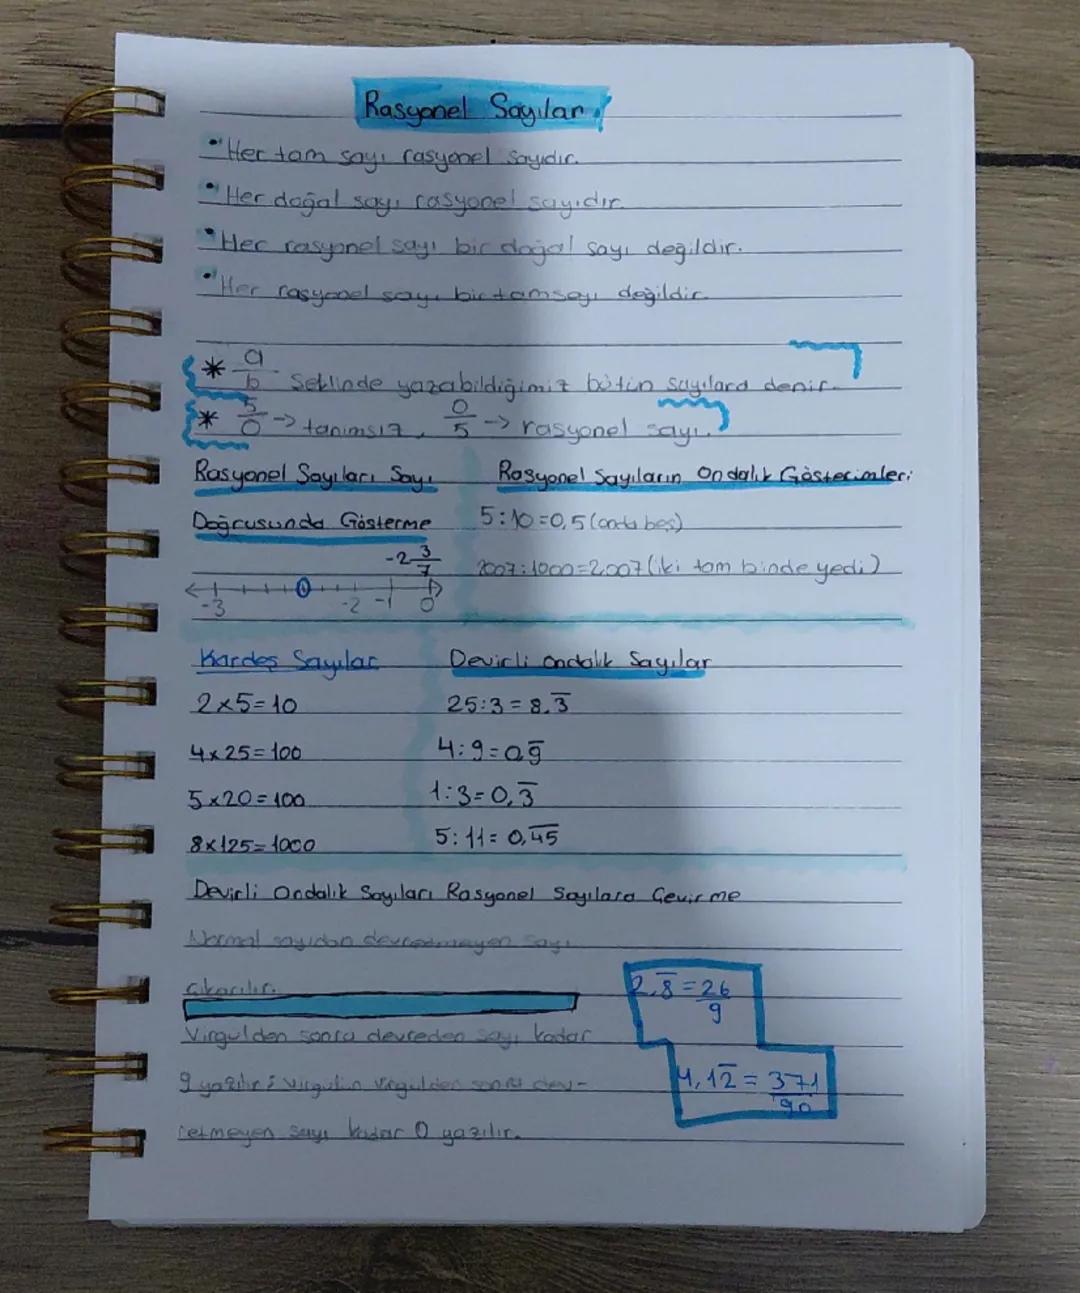 Rasyonel Sayılar
• Her tam sayı rasyonel sayıdır.
• Her doğal sayı rasyonel sayıdır.
• Her rasyonel sayı bir doğal sayı değildir.
• Her rasyonel sayı bir tamsayı değildir.
* a/b Seklinde yazabildiğimiz bütün sayılara denir.
* 5/0 -> tanımsız, 0/5 -> rasyonel sayı.
Rasyonel Sayıları Sayı
Doğrusunda Gösterme
-2 3/7
-3 0 -2 -1 0
Rasyonel Sayıların Ondalık Gösterimleri
5:10=0,5 (onda beş)
2007:1000=2,007 (iki tam binde yedi)
Kardeş Sayılar
2x5=10
4x25=100
5x20=100
8x125=1000
Devirli Ondalık Sayılar
25:3=8,3̅
4:9=0,9̅
1:3=0,3̅
5:11=0,4̅5̅
Devirli Ondalık Sayıları Rasyonel Sayılara Çevirme
Normal sayıdan devretmeyen sayı
çıkarılır.
Virgülden sonra devreden sayı kadar
9 yazılır; virgülden sonra dev-
retmeyen sayı kadar 0 yazılır.
2,8̅=26/9
4,12̅=371/90